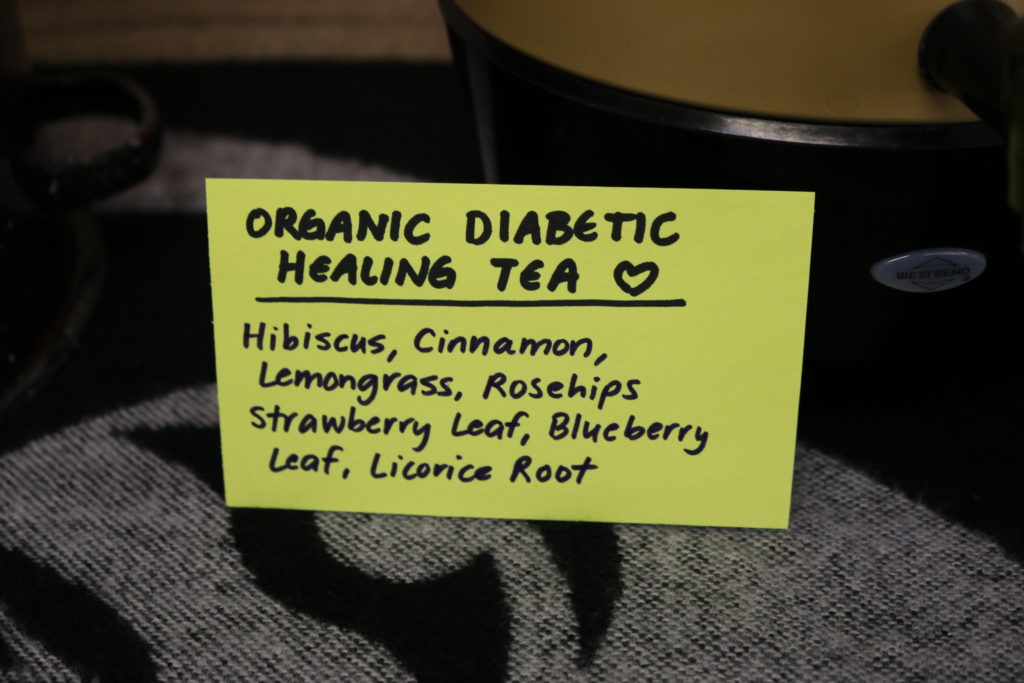 ORGANIC DIABETIC
HEALING TEA ♡
Hibiscus, Cinnamon,
Lemongrass, Rosehips
Strawberry Leaf, Blueberry
Leaf, Licorice Root
WEST BEND